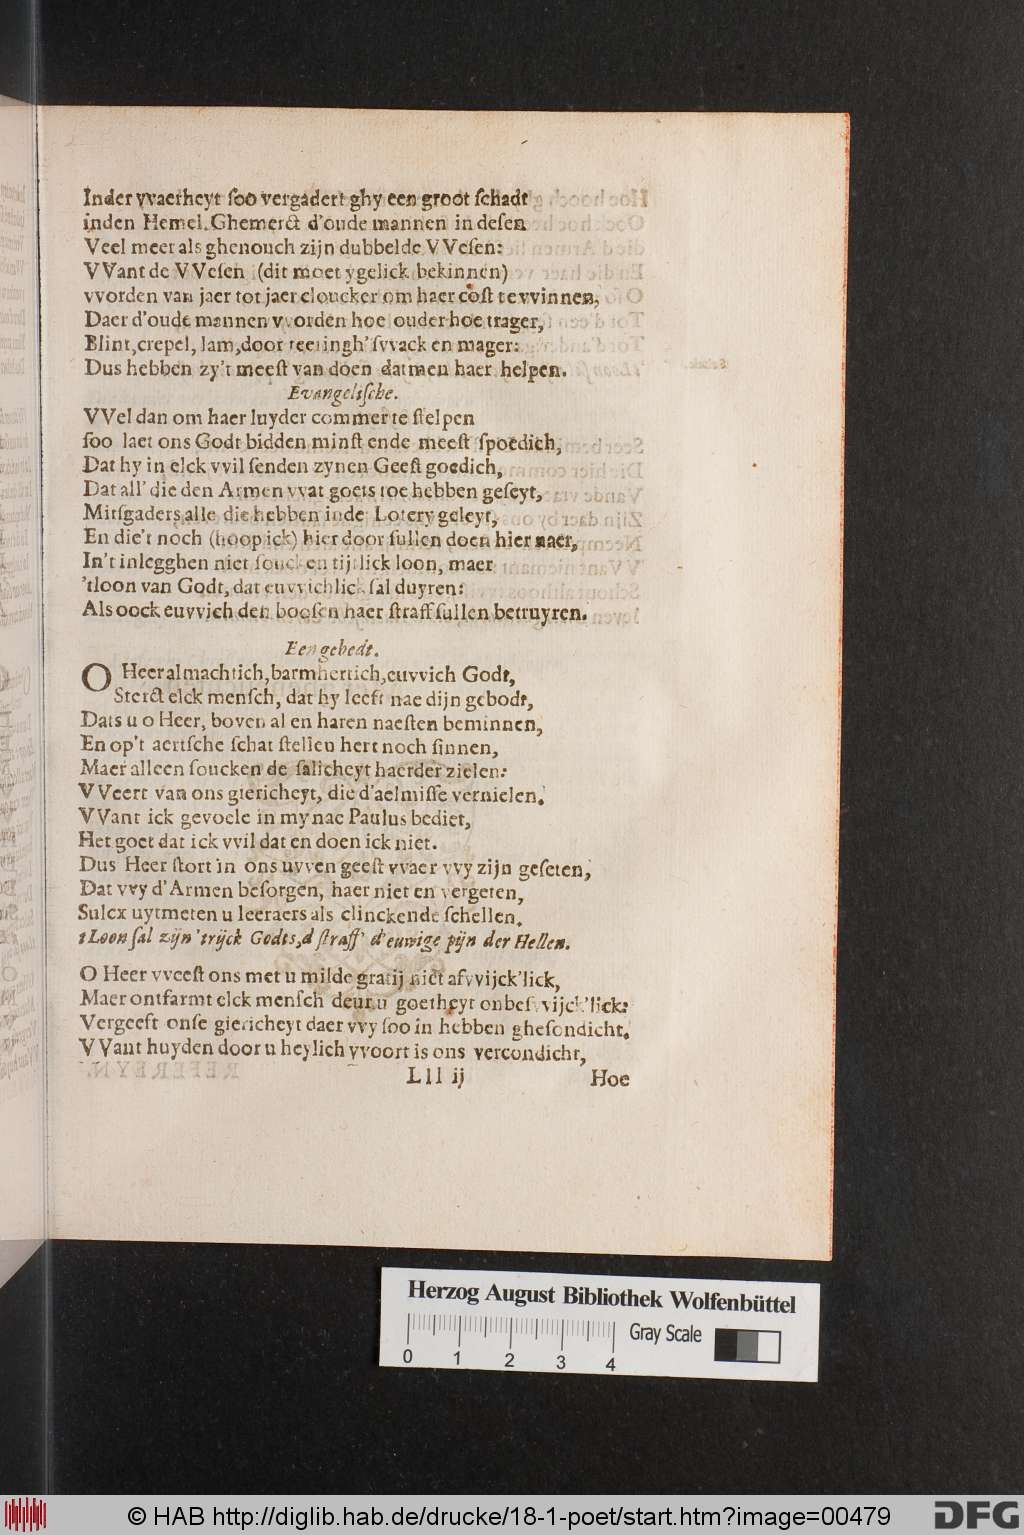 Inder vvaerheyt ſoo vergadert ghy een groot ſchadt
inden Hemel. Ghemerct d'oude mannen in deſen
Veel meer als ghenouch zijn dubbelde VVeſen:
VVant de VVeſen (dit moet ygelick bekinnen)
vvorden van jaer tot jaer cloucker om haer coſt te vvinnen,
Daer d'oude mannen vvorden hoe ouder hoe trager,
Blint, crepel, lam, door teeringh' ſvvack en mager:
Dus hebben zy't meeſt van doen datmen haer helpen.
Evangeliſche.
VVel dan om haer luyder commer te ſtelpen
ſoo laet ons Godt bidden minſt ende meeſt ſpoedich,
Dat hy in elck vvil ſenden zynen Geeſt goedich,
Dat all' die den Armen vvat goets toe hebben geſeyt,
Mitſgaders alle die hebben inde Lotery geleyt,
En die't noch (hoop ick) hier door ſullen doen hier naer,
In't inlegghen niet ſoucken tijtlick loon, maer
'tloon van Godt, dat euvvichlick ſal duyren:
Als oock euvvich den booſen haer ſtraff ſullen betruyren.
Een gebedt.
O Heer almachtich, barmhertich, euvvich Godt,
Sterct elck menſch, dat hy leeft nae dijn gebodt,
Dats u o Heer, boven al en haren naeſten beminnen,
En op't aertſche ſchat ſtellen hert noch ſinnen,
Maer alleen ſoucken de ſalicheyt haerder zielen:
VVeert van ons giericheyt, die d'aelmiſſe vernielen,
VVant ick gevoele in my nae Paulus bediet,
Het goet dat ick vvil dat en doen ick niet.
Dus Heer ſtort in ons uvven geeſt vvaer vvy zijn geſeten,
Dat vvy d'Armen beſorgen, haer niet en vergeten,
Sulcx uytmeten u leeraers als clinckende ſchellen.
tLoon ſal zijn 'trijck Godts, d ſtraff' d'euwige pijn der Hellen.
O Heer vveeſt ons met u milde gratij niet afvvijck'lick,
Maer ontfarmt elck menſch deur u goetheyt onbeſvvijck'lick:
Vergeeft onſe giericheyt daer vvy ſoo in hebben gheſondicht,
VVant huyden door u heylich vvoort is ons vercondicht,
Lll ij
Hoe
Herzog August Bibliothek Wolfenbüttel
Gray Scale
0 1 2 3 4
© HAB http://diglib.hab.de/drucke/18-1-poet/start.htm?image=00479
DFG